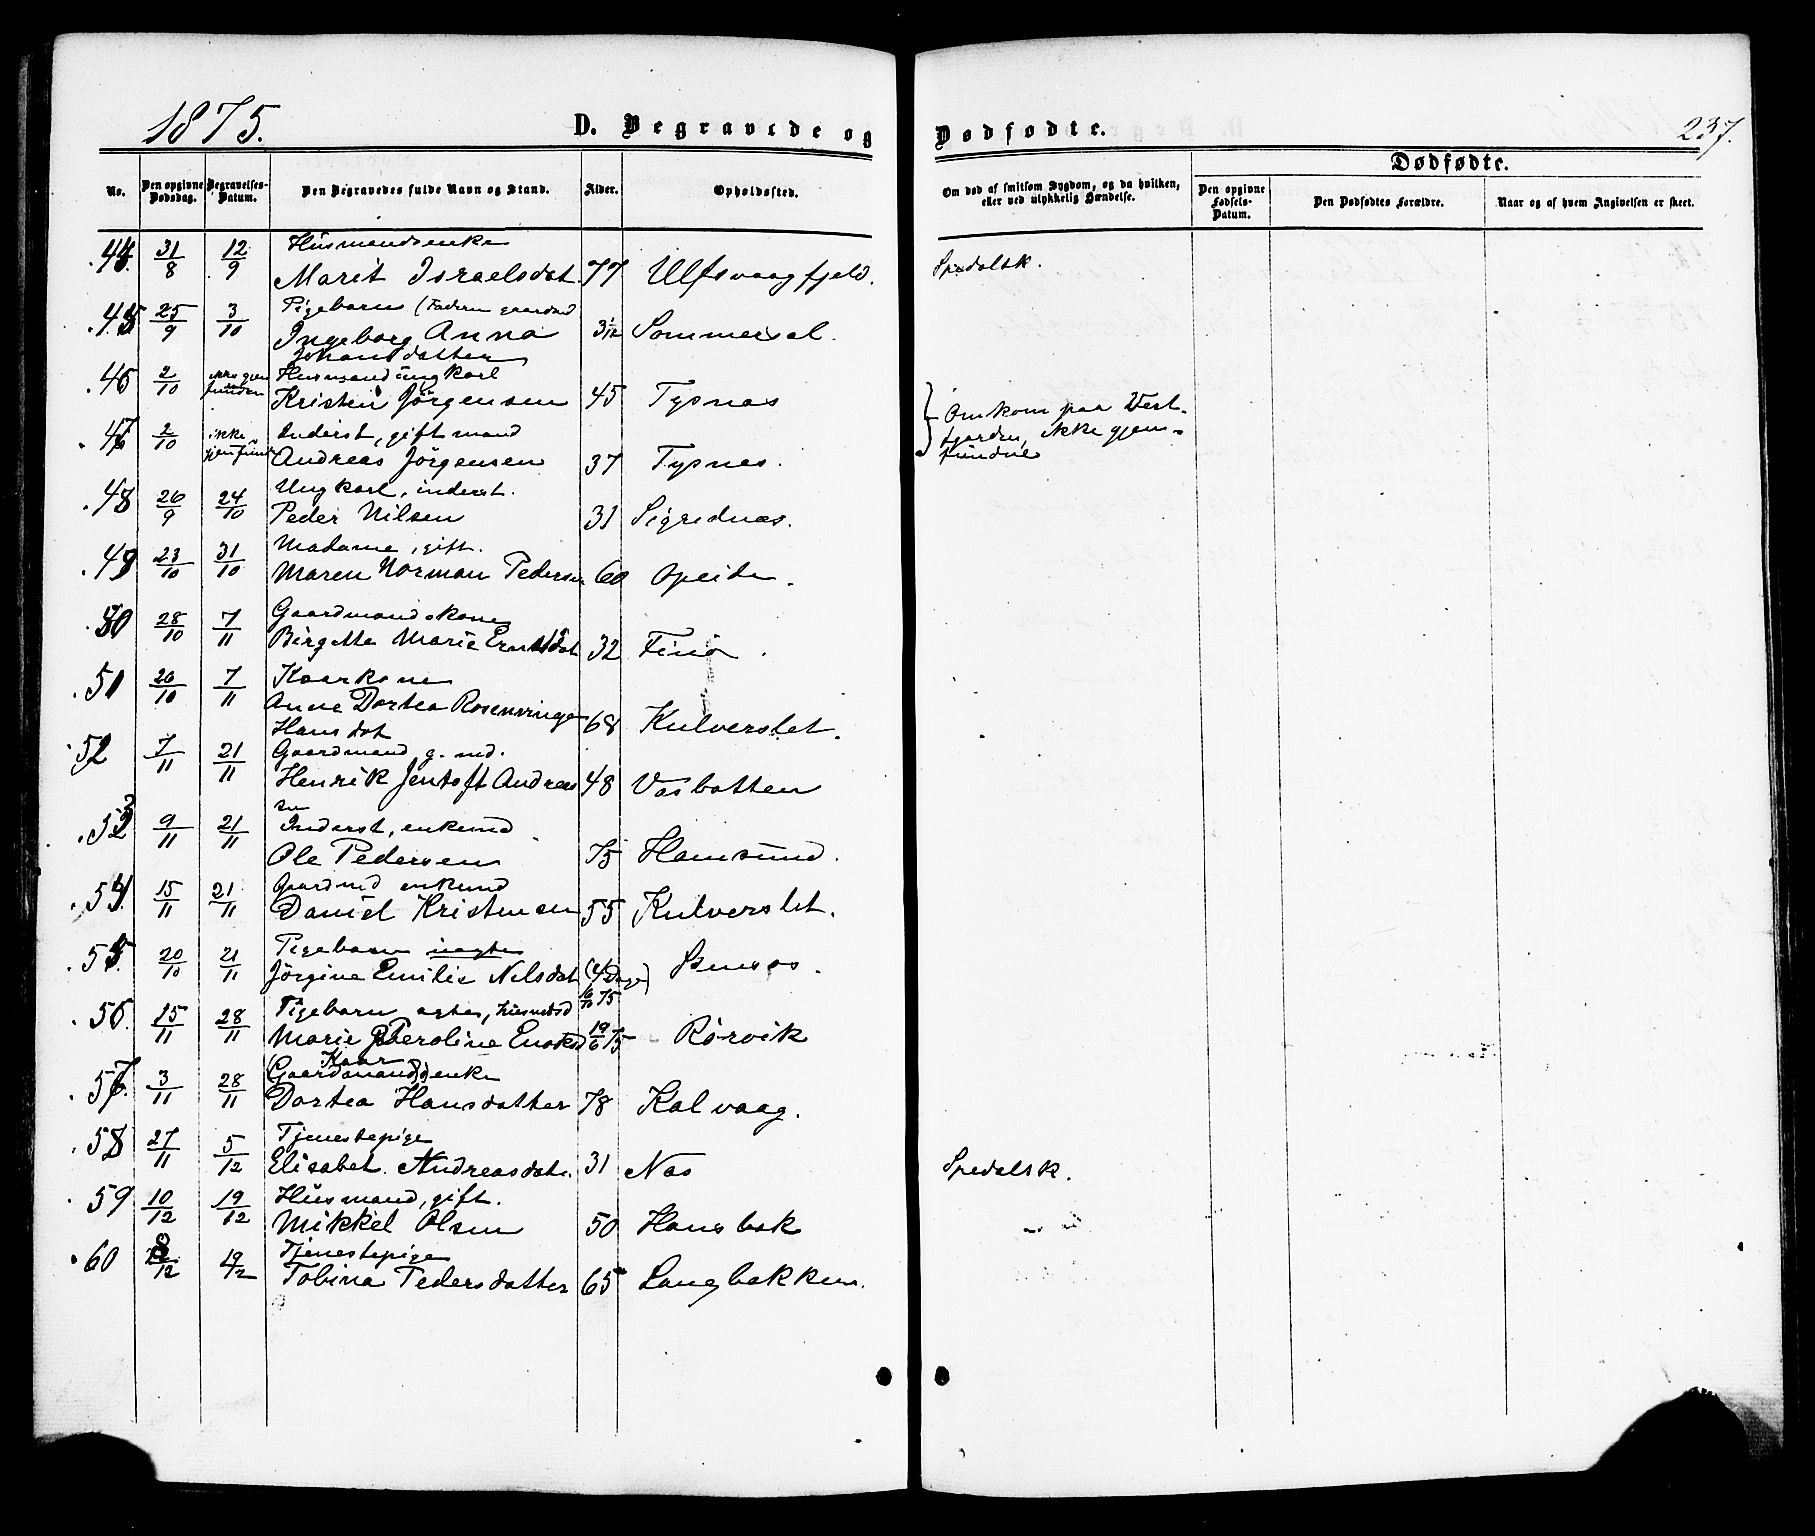 1875. D. Begravede og Dødfødte. 237.
Dødfødte.
No. Den opgivne Dødsdag. Begravelses-Datum. Den Begravedes fulde Navn og Stand. Alder. Opholdssted. Om død af smitsom Sygdom, og da hvilken, eller ved ulykkelig Hændelse. Den opgivne Fødsels-Datum. Den Dødfødtes Forældre. Naar og af hvem Angivelsen er skeet.
44. 31/8 12/9 Husmandsenke
Marit Israelsdat. 77 Ulfsvaagfjeld. Spedalsk.
45 25/9 3/10 Pigebarn (Faderen
Ingeborg Anna Sommersel.
Johansdatter
46 2/10 ikke gjen Husmand ungkarl
funden Kristen Jörgensen 45 Tysnæs } Omkom paa Vest-
47 2/10 ikke Inderst, gift mand fjorden, ikke gjen-
gjenfund Andreas Jörgensen 37 Tysnes. fundne
48 26/9 24/10 Ungkarl, inderst.
Peder Nilsen 31 Sigrednæs.
49 23/10 31/10 Madame, gift.
Maren Norman Pedersen 60 Opeide.
50 28/10 7/11 Gaardmandskone
Birgitte Marie Erntsdat 32
51 26/10 7/11 Kaarkone
Anne Dortea Rosenvinge 68 Kulverslet.
Hansdat
52 7/11 21/11 Gaardmand g. md.
Henrik Jentoft Andreas 48 Vasbotten
sen
53 9/11 21/11 Inderst, enkemd
Ole Pedersen 75 Hamsund.
54. 15/11 21/11 Gaardmd enkemd
Daniel Kristensen 55 Kulverslet.
55. 20/10 21/11 Pigebarn uægte
Jörgine Emilie Nelsdat (4 Dage)
16/10 75
56. 15/11 28/11 Pigebarn ægte, husmdsd
Marie Peroline Enoksd 19/6 75 Rørvik
Kaar
57. 3/11 28/11 (Gaardmands)enke
Dortea Hansdatter 78 Kalvaag.
58 27/11 5/12 Tjenestepige
Elisabet Andreasdat. 31 Næs Spedalsk.
59 10/12 19/12 Husmand, gift.
Mikkel Olsen 50 Hansbak
60 8/12 Tjenestepige
Tobina Pedersdatter 65 Langbakken.